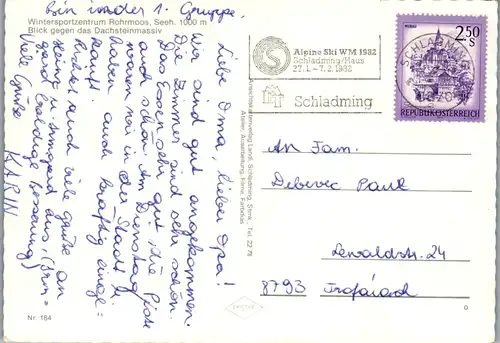 Bin in der 1. Gruppe.
Wintersportzentrum Rohrmoos, Seeh. 1000 m
Blick gegen das Dachsteinmassiv
Liebe Oma, lieber Opa!
Wir sind gut angekommen.
Die Zimmer sind sehr schön.
Das Essen sehr gut, die Piste
auch schön. Am Dienstag
waren wir in der Stadt u.
haben auch kräftig einge=
kauft.
auch viele Grüße an
Heinz u. Irmgard aus,
Baldige Besserung)
Viele Grüße
KARIN
Nr. 184
Alpine Ski WM 1982
Schladming/Haus
27.1.-7.2.1982
Schladming
SCHLADMING
2.50
S
REPUBLIK ÖSTERREICH
An Fam.
Debevec Paul
Lewaldstr. 24
8793 Trofaiach